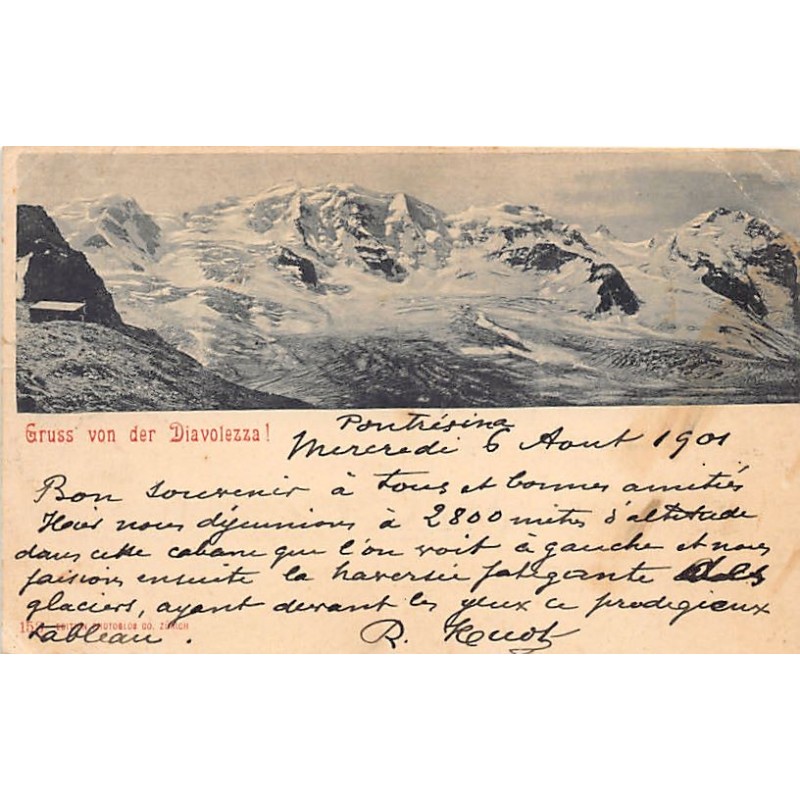 Gruss von der Diavolezza!
Pontrésina
Mercredi 6 Aout 1901
Bon souvenir à tous et bonnes amitiés
Hier nous déjeunions à 2800 mètres d'altitude
dans cette cabane que l'on voit à gauche et nous
faisions ensuite la traversée fatigante des
glaciers, ayant devant les yeux ce prodigieux
tableau.
R.
152 EDITION PHOTOGLOB CO. ZÜRICH